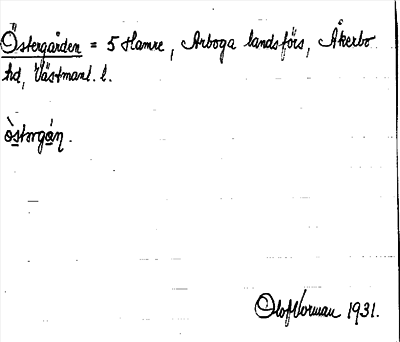 Östergården = 5 Hamre, Arboga landsförs, Åkerbo
hd, Västmanl. l.
òstərgán.
Olof Vorman 1931.